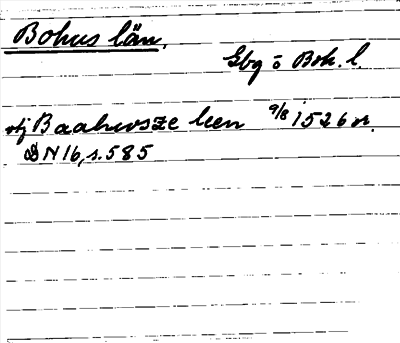 Bohus län.
Gbg o Boh. l.
Baahusze leen 9/8 1526
DN 16, s. 585